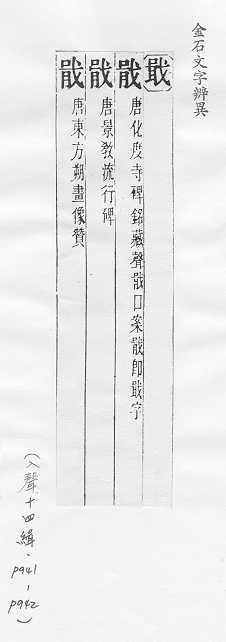 金石文字辨異
戢
戢 唐化度寺碑銘藏聲戢口案戢即戢字
戢 唐景教流行碑
戢 唐東方朔畫像贊
(入聲十四緝·p941-p942)